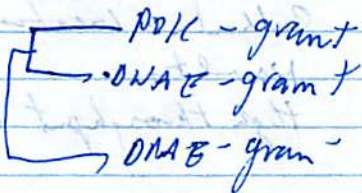 PolC - gram+
DNAE - gram+
DNAE - gram-